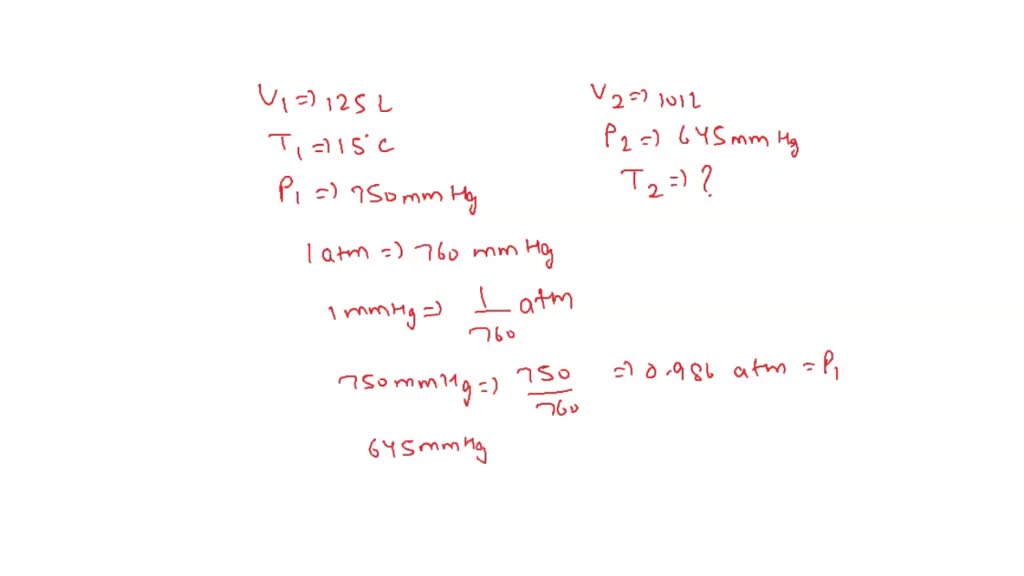 V1 => 125 L
T1 => 15°C
P1 => 750 mm Hg
V2 => 101L
P2 => 645 mm Hg
T2 => ?
1 atm => 760 mm Hg
1 mmHg => 1/760 atm
750 mmHg => 750/760 => 0.986 atm = P1
645 mmHg